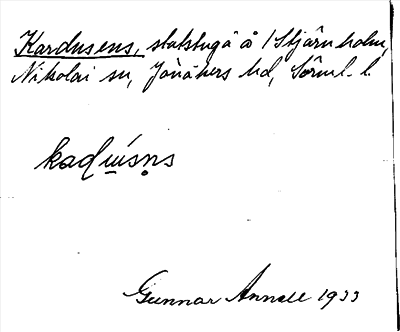 Kardusens, statstuga å / Stjärnholm,
Nikolai sn, Jönåkers hd, Sörml. l.
kadúsṇs
Gunnar Annell 1933